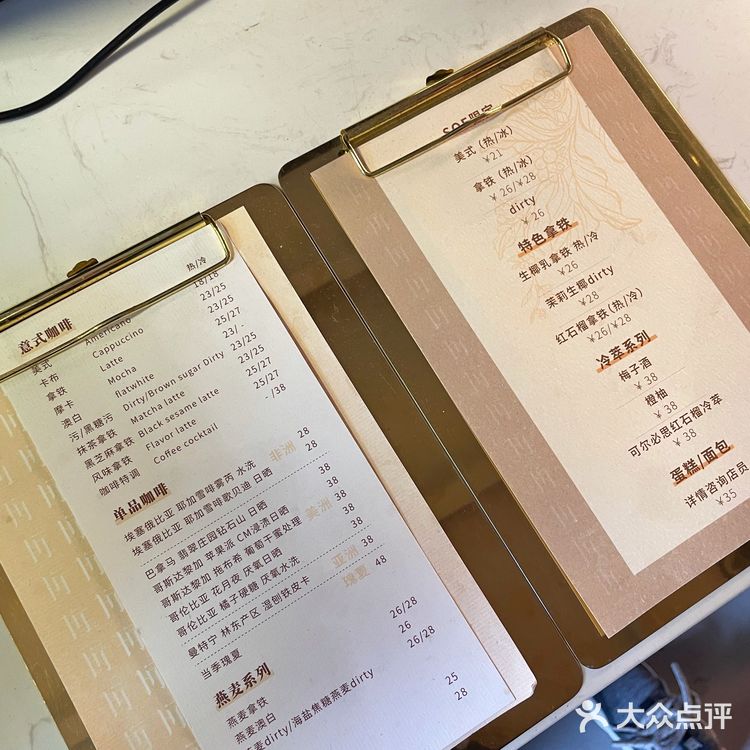 热/冷
意式咖啡
美式 Americano 18/18
卡布 Cappuccino 23/25
拿铁 Latte 23/25
摩卡 Mocha 25/27
澳白 flatwhite 23/-
污/黑糖污 Dirty/Brown sugar Dirty 23/25
抹茶拿铁 Matcha latte 23/25
黑芝麻拿铁 Black sesame latte 25/27
风味拿铁 Flavor latte 25/27
咖啡特调 Coffee cocktail -/38
单品咖啡
非洲
埃塞俄比亚 耶加雪啡雾芮 水洗 28
埃塞俄比亚 耶加雪啡歌贝迪 日晒 28
美洲
巴拿马 翡翠庄园钻石山 日晒 38
哥斯达黎加 苹果派 CM浸渍日晒 38
哥斯达黎加 拖布希 葡萄干蜜处理 38
哥伦比亚 花月夜 厌氧日晒 38
哥伦比亚 橘子硬糖 厌氧水洗 38
亚洲
曼特宁 林东产区 湿刨铁皮卡 38
瑰夏
当季瑰夏 48
燕麦系列
燕麦拿铁 26/28
燕麦澳白 26
燕麦dirty/海盐焦糖燕麦dirty 26/28
25
28
SOE限定
美式 (热/冰)
¥21
拿铁 (热/冰)
¥ 26/¥28
dirty
¥ 26
特色拿铁
生椰乳拿铁 热/冷
¥26
茉莉生椰dirty
¥28
红石榴拿铁(热/冷)
¥26/¥28
冷萃系列
梅子酒
¥ 38
橙柚
¥ 38
可尔必思红石榴冷萃
¥ 38
蛋糕/面包
详情咨询店员
¥35
大众点评